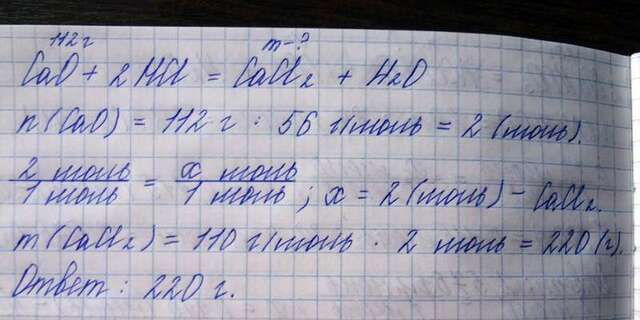 112 г m-?
CaO + 2 HCl = CaCl₂ + H₂O
n (CaO) = 112 г : 56 г/моль = 2 (моль).
2 моль / 1 моль = x моль / 1 моль ; x = 2 (моль) - CaCl₂.
m (CaCl₂) = 110 г/моль · 2 моль = 220 (г).
Ответ : 220 г.